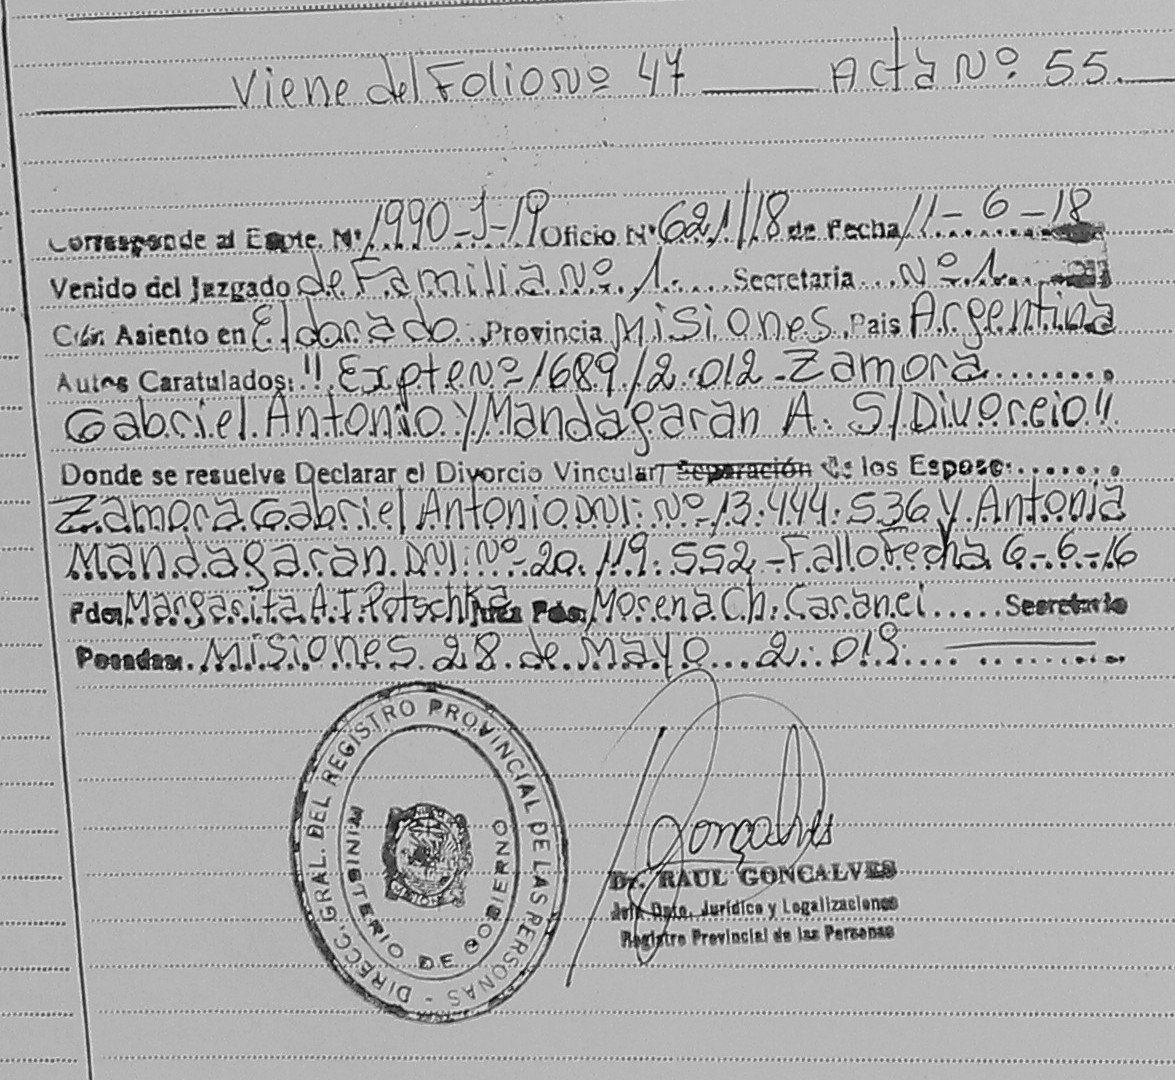 Viene del Folio Nº 47 Acta Nº 55.
Corresponde al Expte. Nº 1990-J-19 Oficio Nº 621/18 de Fecha 11-6-18
Venido del Juzgado de Familia Nº 1 Secretaria Nº 1
Con Asiento en Eldorado Provincia Misiones Pais Argentina
Autos Caratulados: "Expte Nº 1689/2.012 - Zamora
Gabriel Antonio y Mandagaran A. S/Divorcio"
Donde se resuelve Declarar el Divorcio Vincular Separación de los Esposos:
Zamora Gabriel Antonio DNI: Nº 13.444.536 y Antonia
Mandagaran DNI: Nº 20.119.552 - Fallo Fecha 6-6-16
Fdo: Margarita A. I. Potschka Juez Fdo: Morena Ch. Caranci Secretario
Posadas. Misiones 28 de Mayo 2.019
DIRECC. GRAL. DEL REGISTRO PROVINCIAL DE LAS PERSONAS -
MINISTERIO DE GOBIERNO
Goncalves
Dr. RAUL GONCALVES
Jefe Dpto. Jurídico y Legalizaciones
Registro Provincial de las Personas